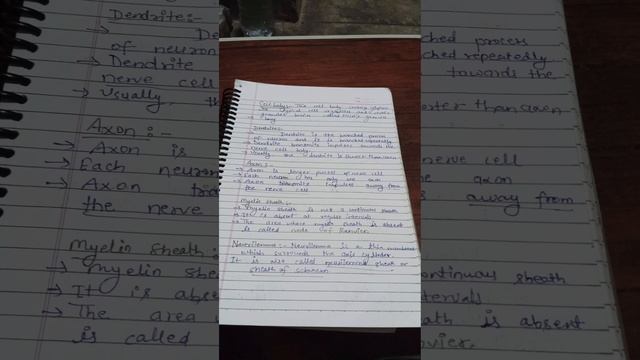 Dendrite :-
of neuron
→ Dendrite
nerve cell
→ Usually,
Axon :-
→ Axon is
→ Each neuron
→ Axon
the nerve
Myelin sheath :-
→ Myelin shea
→ It is abse
→ The area
is called
Cell body :- The cell body
granules
body
Dendrites :-
Dendrite is the branched process
of neuron and it is branched repeatedly
→ Dendrite transmits impulses towards the
nerve cell body
→ Usually, the dendrite is shorter than axon
Axon :-
→ Axon is longer process of nerve cell
→ Each neuron has only one axon
→ Axon transmits impulses away from
the nerve cell
Myelin sheath :-
→ Myelin sheath is not a continuous sheath
→ It is absent at regular intervals
→ The area where myelin sheath is absent
is called node of Ranvier
Neurilemma :- Neurilemma is a thin membrane
which surrounds the axis cylinder.
It is also called neurilemmal sheath or
sheath of schwann
ched process
ched repeatedly
towards the
orter than axon
nerve cell
axon
away from
ontinuous sheath
tervals
ath is absent
vier.